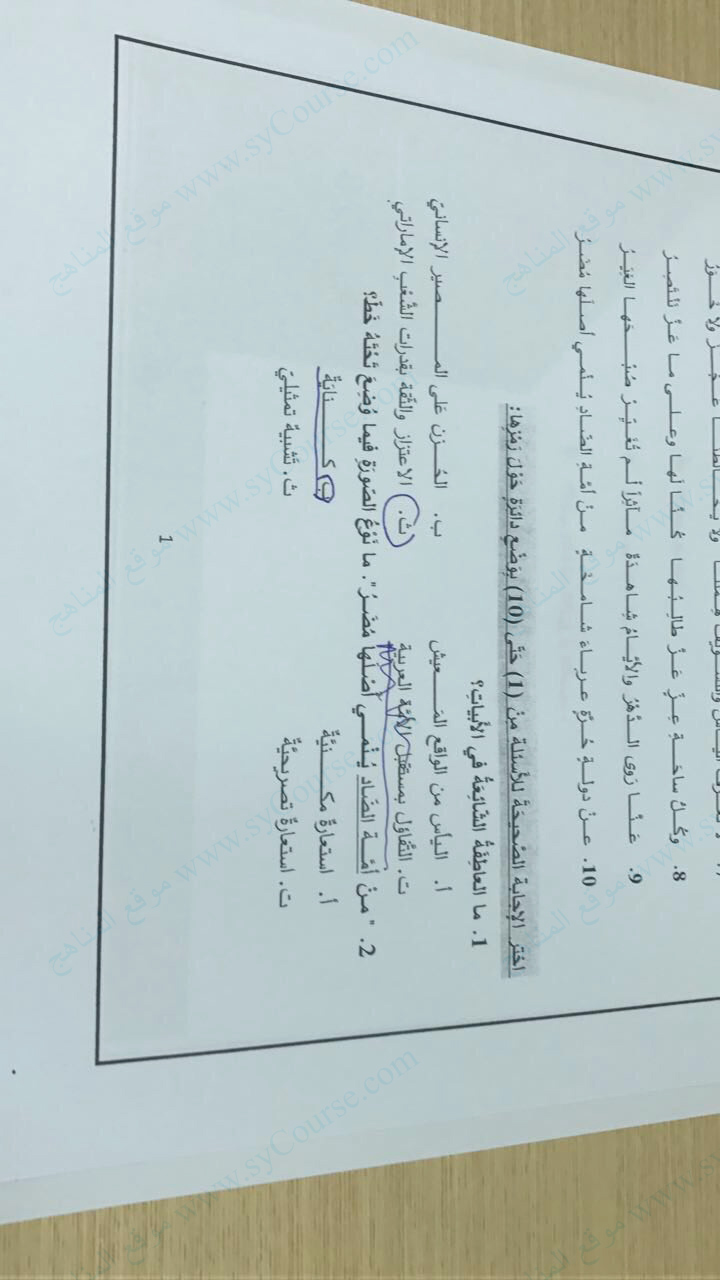 8. وكُلُّ ساحَـةِ عِـزٍّ عَـزَّ طالِبُـها كُـنَّـا لَـها وعـلـى ما عَـزَّ نَنْتَصِـرُ
9. عَـنَّـا رَوى الـدَّهْرُ والأيَّـامُ شـاهِـدَةٌ مـآثِـراً لـم تُغَـيِّـرْ صُبْـحَـها الغِيَـرُ
10. عـنْ دولـةٍ حُـرَّةٍ عـربـاءَ شـامـخـةٍ مـنْ أمَّـةِ الضّـادِ يُـنْـمـي أصـلَـها مُضَـرُ
اخترِ الإجابةَ الصّحيحةَ للأسئلةِ منْ (1) حَتّى (10) بوَضْعِ دائرَةٍ حَوْلَ رَمْزِها:
1. ما العاطِفَةُ الشّائِعَةُ في الأبْياتِ؟
أ. اليأس من الواقع المَـعيش ب. الحُـزن عَلى المَـصير الإنسانيّ
ت. التّفاؤل بمستقبل الأمّة العربية ث. الاعتزاز والثّقة بقدرات الشّعْبِ الإماراتيّ
2. " مـنْ أمَّـة الضّاد يُـنْـمـي أصْـلَـها مُضَـرُ". ما نَوْعُ الصّورَةِ فيما وُضِعَ تَحْتَهُ خَطّ؟
أ. استعارةٌ مكـنيّةٌ ب. كـنايَةٌ
ت. استعارةٌ تصريحيَّةٌ ث. تشبيهٌ تمثيليّ
1
موقع المناهج www.syCourse.com